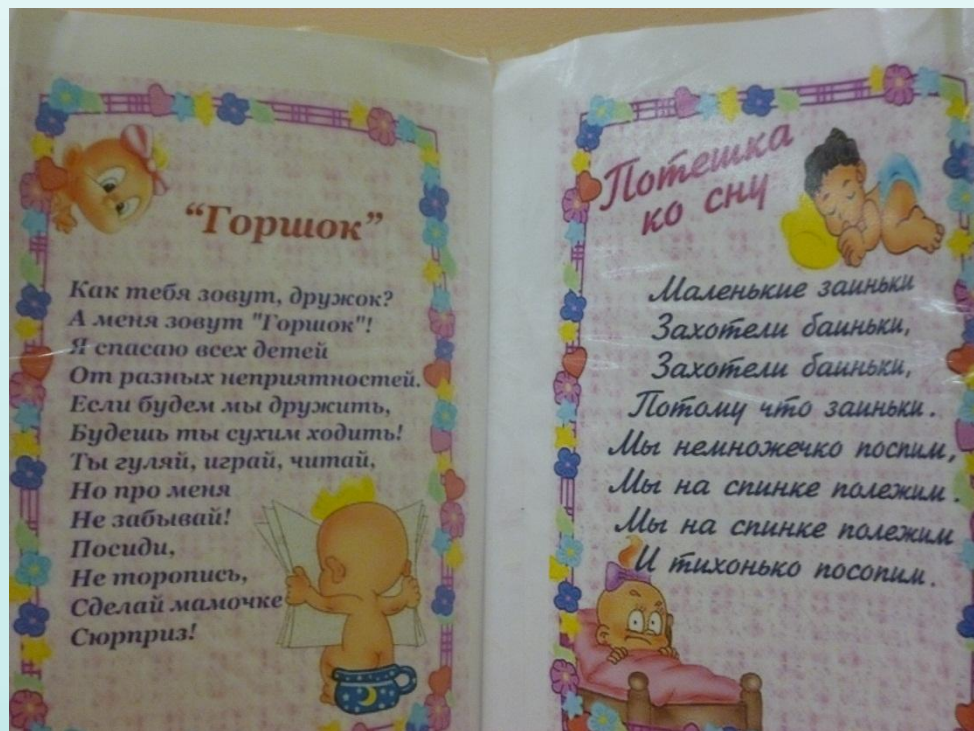 “Горшок”
Как тебя зовут, дружок?
А меня зовут "Горшок"!
Я спасаю всех детей
От разных неприятностей.
Если будем мы дружить,
Будешь ты сухим ходить!
Ты гуляй, играй, читай,
Но про меня
Не забывай!
Посиди,
Не торопись,
Сделай мамочке
Сюрприз!
Потешка
ко сну
Маленькие заиньки
Захотели баиньки,
Захотели баиньки,
Потому что заиньки.
Мы немножечко поспим,
Мы на спинке полежим.
Мы на спинке полежим
И тихонько посопим.